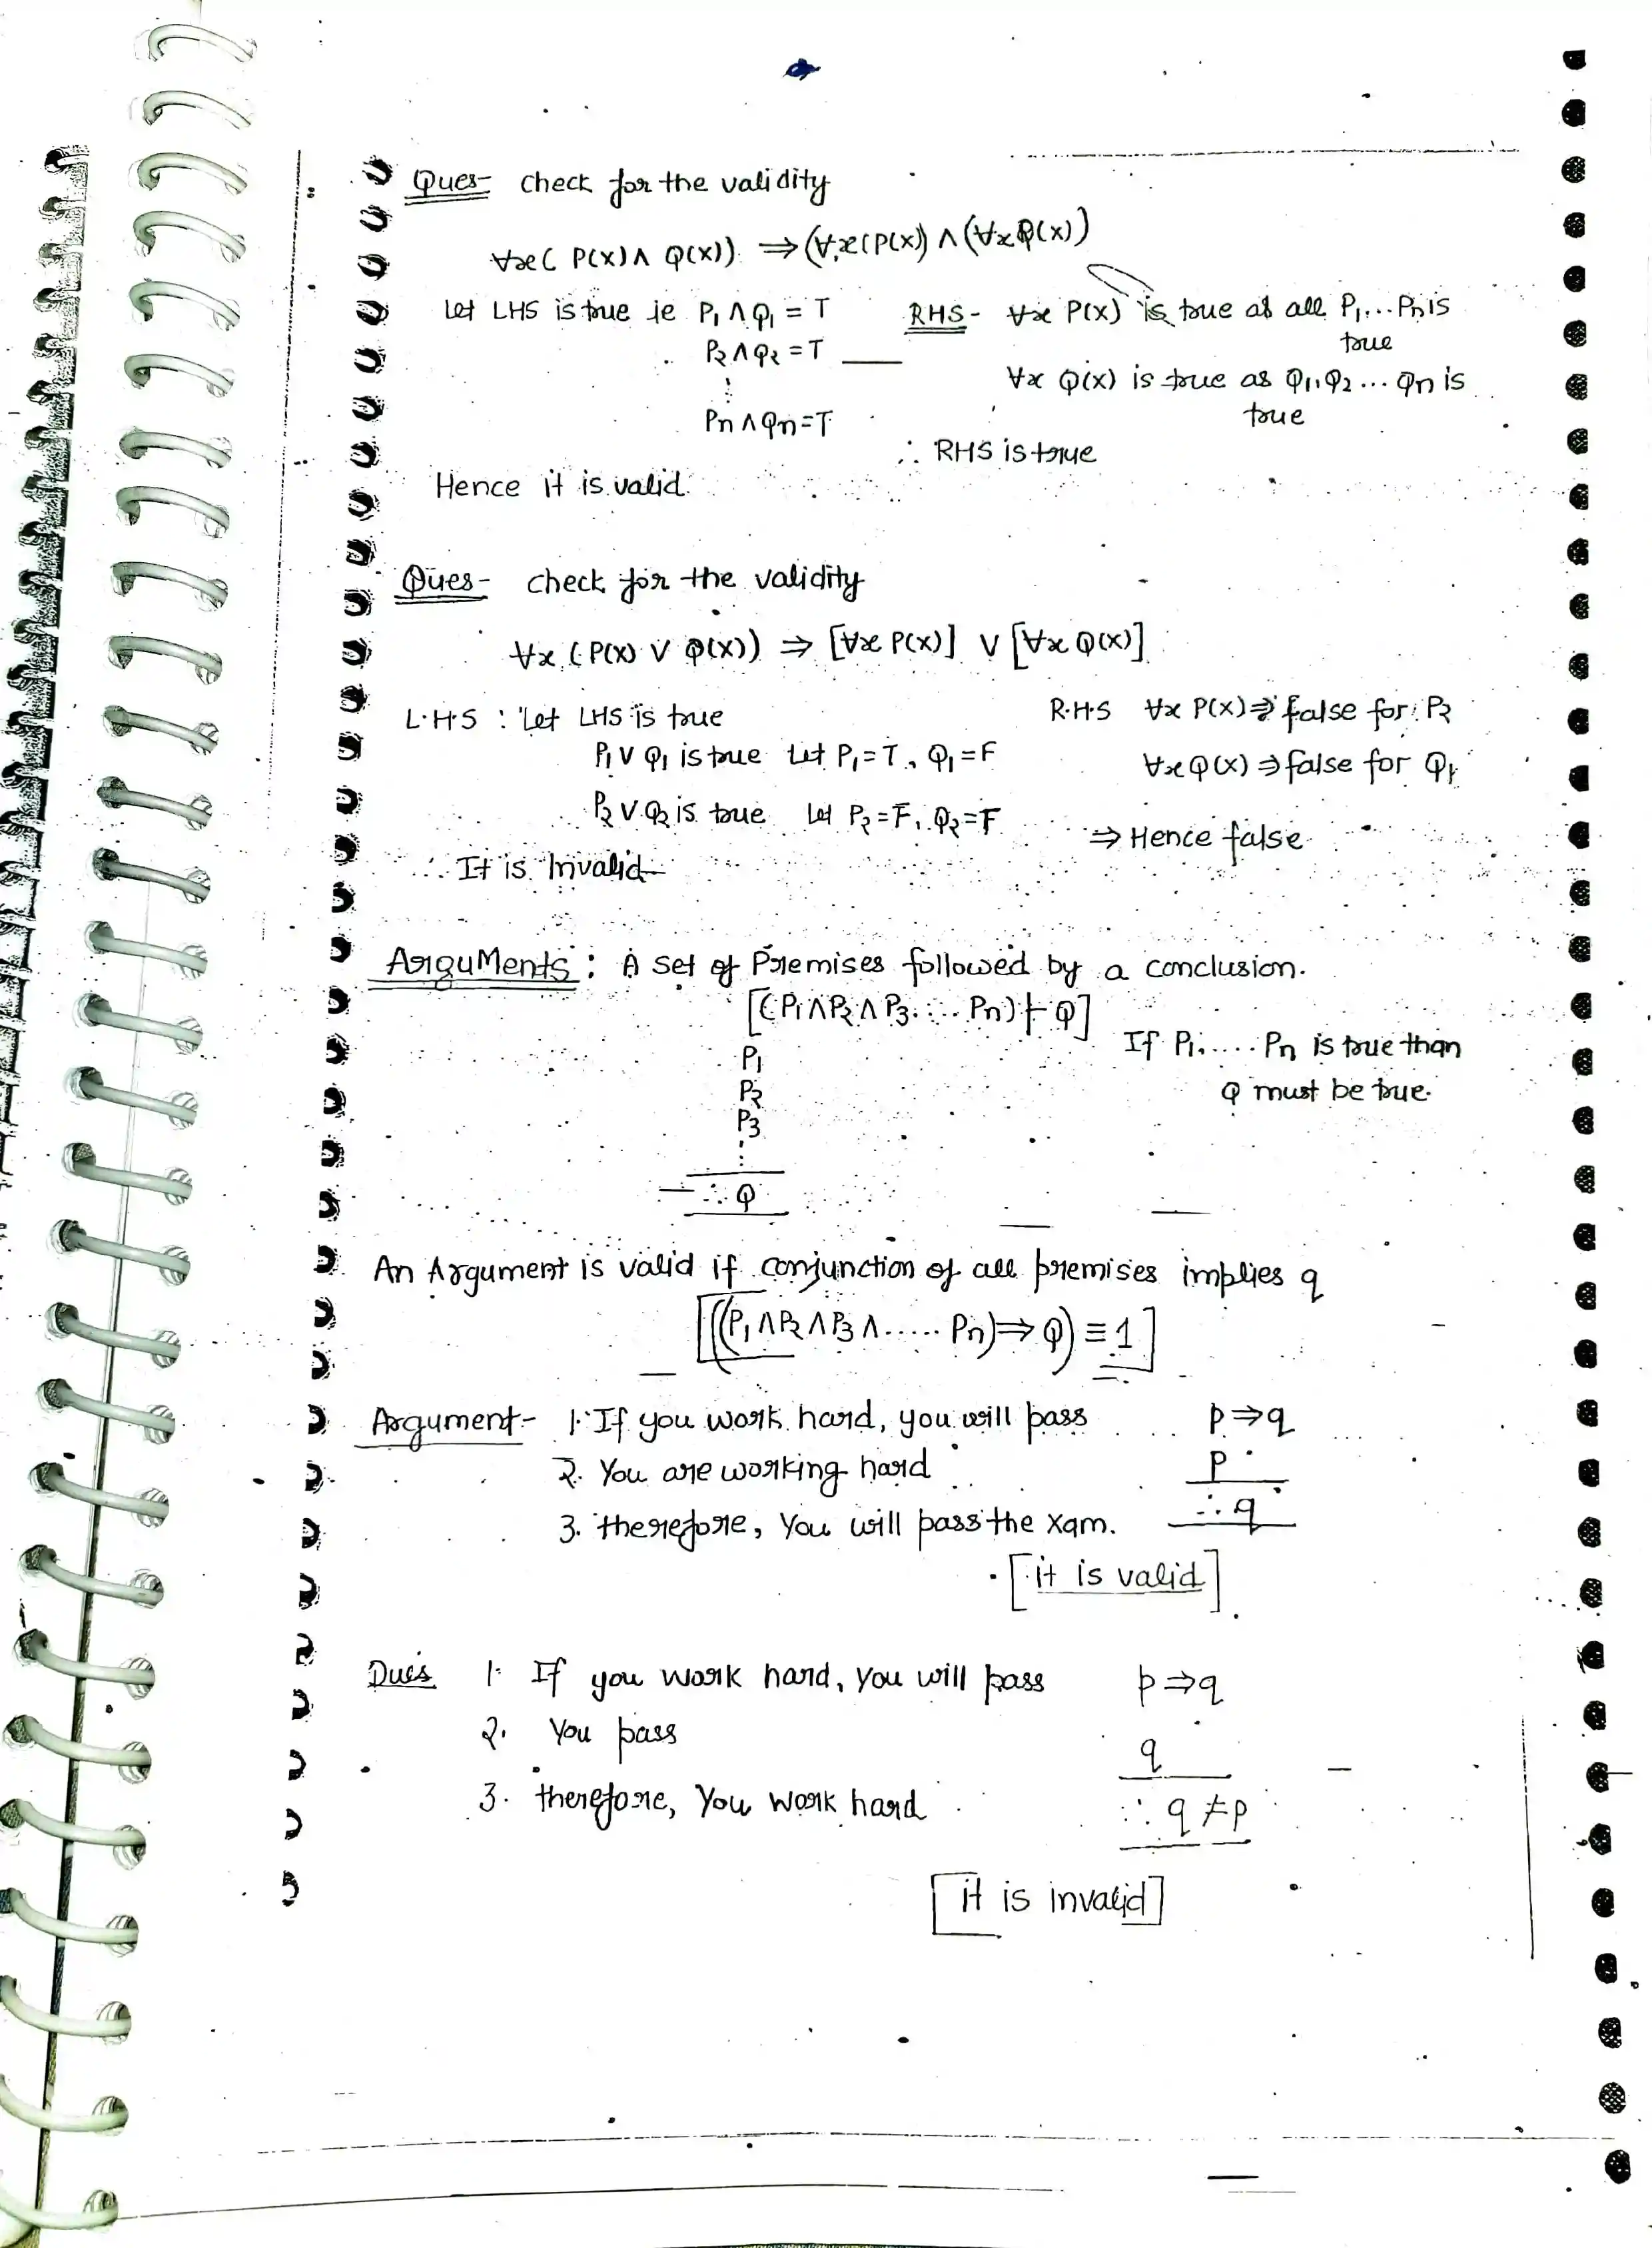 Ques- check for the validity
∀x( P(x) ∧ Q(x)) ⇒ (∀x(P(x)) ∧ (∀xQ(x))
Let LHS is true ie P₁ ∧ Q₁ = T
P₂ ∧ Q₂ = T
⋮
Pn ∧ Qn = T
RHS - ∀x P(x) is true as all P₁...Pn is
true
∀x Q(x) is true as Q₁,Q₂ ... Qn is
true
∴ RHS is true
Hence it is valid.
Ques- check for the validity
∀x (P(x) ∨ Q(x)) ⇒ [∀x P(x)] ∨ [∀x Q(x)]
L.H.S : Let LHS is true
P₁ ∨ Q₁ is true Let P₁=T, Q₁=F
P₂ ∨ Q₂ is true Let P₂=F, Q₂=F
∴ It is Invalid
R.H.S ∀x P(x) ⇒ false for P₂
∀x Q(x) ⇒ false for Q₁
⇒ Hence false
ArguMents : A set of Premises followed by a conclusion.
[(P₁∧P₂∧P₃.... Pn) ⊢ Q]
P₁
P₂
P₃
⋮
∴ Q
If P₁..... Pn is true than
Q must be true.
An Argument is valid if conjunction of all premises implies q
[((P₁∧P₂∧P₃∧...... Pn) ⇒ Q) ≡ 1]
Argument- 1. If you work hard, you will pass p⇒q
2. You are working hard p
3. therefore, You will pass the xam. ∴ q
[it is valid]
Ques 1. If you work hard, you will pass p⇒q
2. You pass q
3. therefore, You work hard ∴ q ≠ p
[it is invalid]